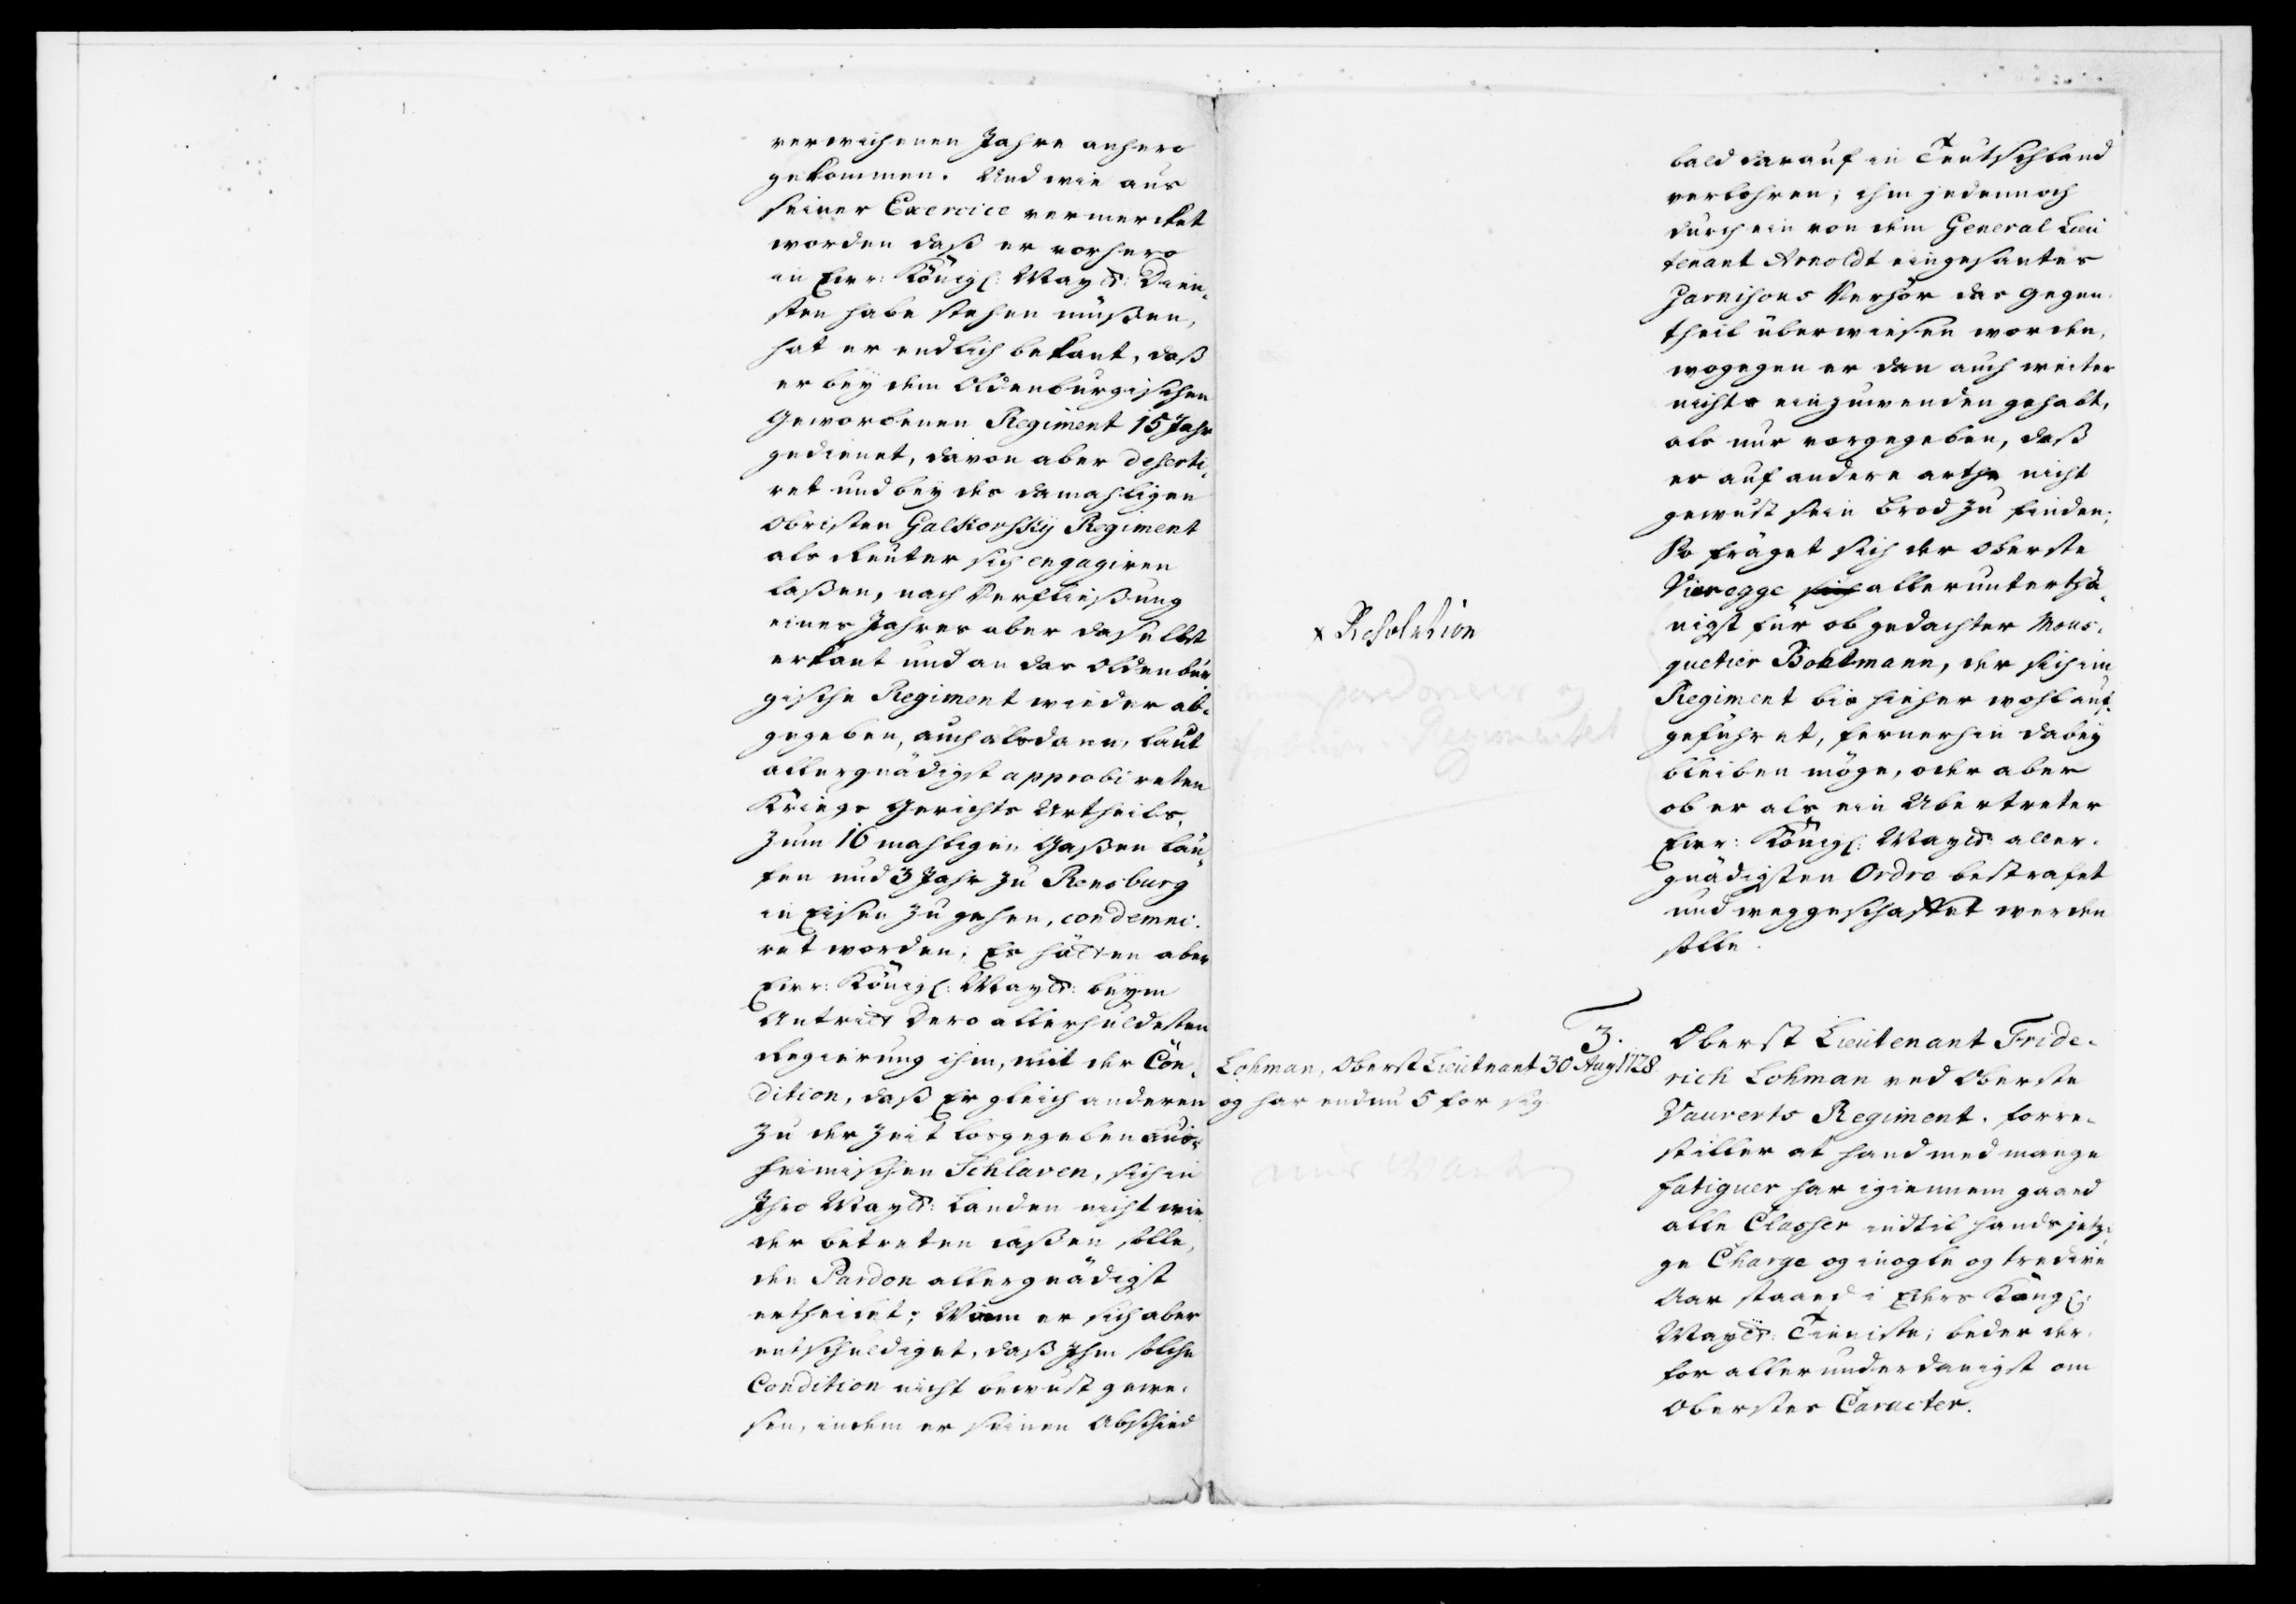 verwichenen Jahre anhero
gekommen. Und wie aus
seiner Exercice vermercket
worden daß er vorhero
in Eur: Königl: Mayts: Dien-
sten habe stehen müßen,
hat er endlich bekant, daß
er bey dem Oldenburgischen
Geworbenen Regiment 15 Jahr
gedienet, davon aber deserti-
ret und bey des damahligen
Obristen Galkowsky Regiment
als Reuter sich engagiren
laßen, nach Verfließung
eines Jahres aber daselbst
erkant und an das Oldenbur-
gische Regiment wieder ab-
gegeben, auch alsdann, laut
allergnädigst approbireten
Kriegs Gerichts Urtheils,
zum 16 mahligen Gaßen lau-
fen und 3 Jahr zu Rensburg
in Eisen zu gehen, condemni-
ret worden; Es hätten aber
Eur: Königl: Mayts: beym
Antritt Dero allerhuldesten
Regierung ihm, mit der Con-
dition, daß Er gleich anderen
zu der Zeit losgegeben aus-
heimischen Schlaven, sich in
Ihro Mayts: Landen nicht wie-
der betreten laßen solle,
den Pardon allergnädigst
ertheilet; Wenn er sich aber
entschuldiget, daß Ihm solche
Condition nicht bewust gewe-
sen, indem er seinen Abschied
bald darauf in Teutschland
verlohren; ihm jedennoch
durch ein von dem General Lieu
tenant Arnoldt eingesantes
Garnisons Verhör das Gegen-
theil überwiesen worden,
wogegen er dan auch weiter
nichts einzuwenden gehabt,
als nur vorgegeben, daß
er auf andere arthe nicht
gewust sein Brod zu finden;
So fräget sich der Oberste
Vieregge sich allerunterthä-
nigst für ob gedachter Mous-
quetier Bohlmann, der sich im
Regiment bis hieher wohl auf-
geführet, fernerhin dabey
bleiben möge, oder aber
ob er als ein Ubertreter
Eur: Königl: Mayts: aller-
gnädigsten Ordre bestrafet
und weggeschaffet werden
solle.
x Resolution
pardoneres og
Regimentet
3.
Lohman, Oberst Lieutnant 30 Aug 1728
og har endnu 5 for sig
Oberst Lieutenant Fride-
rich Lohman ved Oberste
Vauverts Regiment, forre-
stiller at hand med mange
fatiguer har igiennem gaaed
alle Classer indtil hands jetzi-
ge Charge og inogle og tredive
Aar staaed i Eders Kongl:
Mayts: Tieniste; beder der-
for allerunderdanigst om
Oberstes Caracter.